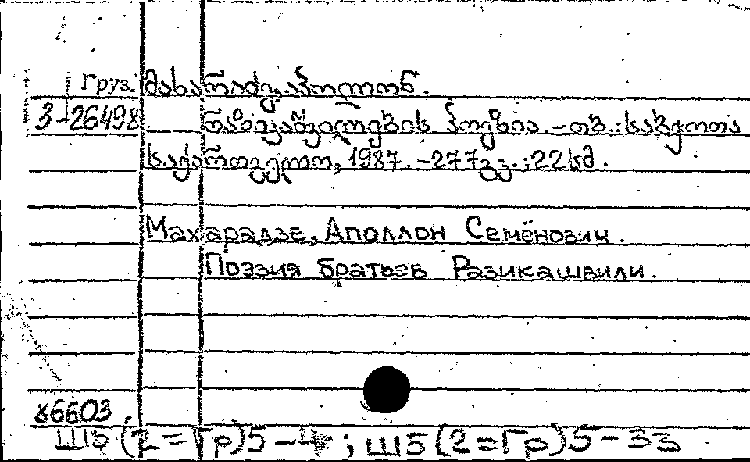 Груз. მახარაძე, აპოლონ.
3-26498 რაზიკაშვილების პოეზია. – თბ.: საბჭოთა
საქართველო, 1987. – 277გვ.; 22 სმ.
Махарадзе, Аполлон Семёнович.
Поэзия братьев Разикашвили.
86603
Ш5(2=Гр)5-4; Ш5(2=Гр)5-33